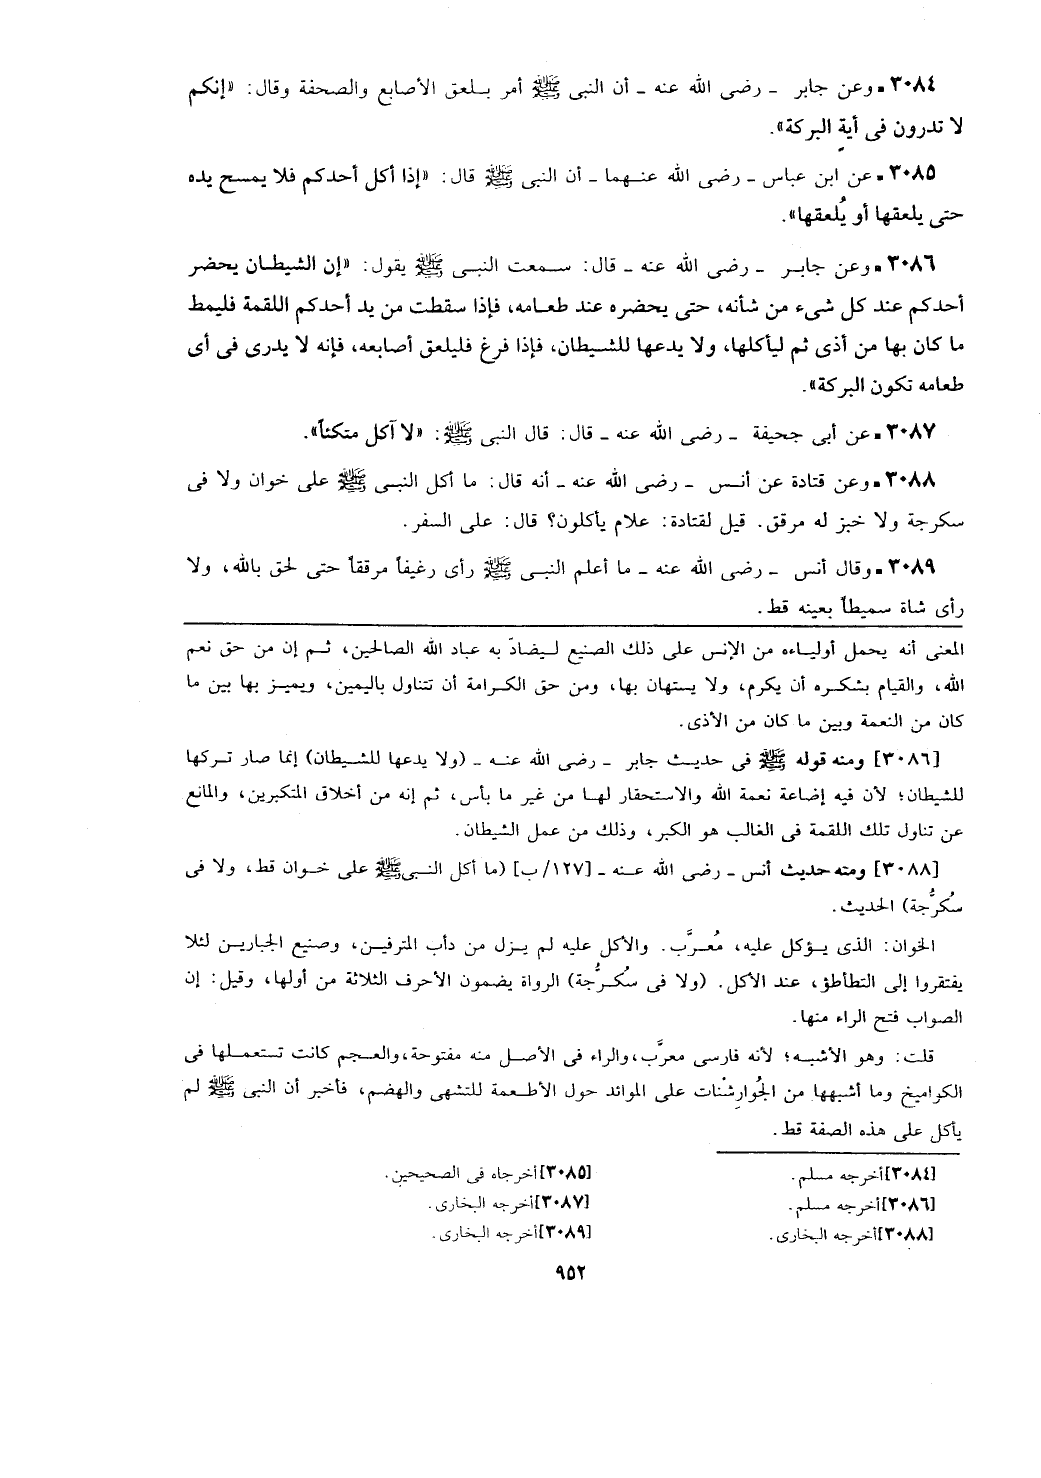 ٣٠٨٤ ـ وعن جابر ـ رضى الله عنه ـ أن النبى ﷺ أمر بلعق الأصابع والصحفة وقال: «إنكم
لا تدرون فى أية البركة».
٣٠٨٥ ـ عن ابن عباس ـ رضى الله عنهما ـ أن النبى ﷺ قال: «إذا أكل أحدكم فلا يمسح يده
حتى يلعقها أو يُلعقها».
٣٠٨٦ ـ وعن جابر ـ رضى الله عنه ـ قال: سمعت النبى ﷺ يقول: «إن الشيطان يحضر
أحدكم عند كل شىء من شأنه، حتى يحضره عند طعامه، فإذا سقطت من يد أحدكم اللقمة فليمط
ما كان بها من أذى ثم ليأكلها، ولا يدعها للشيطان، فإذا فرغ فليلعق أصابعه، فإنه لا يدرى فى أى
طعامه تكون البركة».
٣٠٨٧ ـ عن أبى جحيفة ـ رضى الله عنه ـ قال: قال النبى ﷺ: «لا آكل متكئاً».
٣٠٨٨ ـ وعن قتادة عن أنس ـ رضى الله عنه ـ أنه قال: ما أكل النبى ﷺ على خوان ولا فى
سكرجة ولا خبز له مرقق. قيل لقتادة: علام يأكلون؟ قال: على السفر.
٣٠٨٩ ـ وقال أنس ـ رضى الله عنه ـ ما أعلم النبى ﷺ رأى رغيفاً مرققاً حتى لحق بالله، ولا
رأى شاة سميطاً بعينه قط.
المعنى أنه يحمل أولياءه من الإنس على ذلك الصنيع ليضادّ به عباد الله الصالحين، ثم إن من حق نعم
الله، والقيام بشكره أن يكرم، ولا يستهان بها، ومن حق الكرامة أن تتناول باليمين، ويميز بها بين ما
كان من النعمة وبين ما كان من الأذى.
[٣٠٨٦] ومنه قوله ﷺ فى حديث جابر ـ رضى الله عنه ـ (ولا يدعها للشيطان) إنما صار تركها
للشيطان؛ لأن فيه إضاعة نعمة الله والاستحقار لها من غير ما بأس، ثم إنه من أخلاق المتكبرين، والمانع
عن تناول تلك اللقمة فى الغالب هو الكبر، وذلك من عمل الشيطان.
[٣٠٨٨] ومنه حديث أنس ـ رضى الله عنه ـ [١٢٧/ب] (ما أكل النبىﷺ على خوان قط، ولا فى
سُكرُّجة) الحديث.
الخوان: الذى يؤكل عليه، مُعرَّب. والأكل عليه لم يزل من دأب المترفين، وصنيع الجبارين لئلا
يفتقروا إلى التطأطؤ، عند الأكل. (ولا فى سُكرُّجة) الرواة يضمون الأحرف الثلاثة من أولها، وقيل: إن
الصواب فتح الراء منها.
قلت: وهو الأشبه؛ لأنه فارسى معرَّب، والراء فى الأصل منه مفتوحة، والعجم كانت تستعملها فى
الكواميخ وما أشبهها من الجُوارِشْنات على الموائد حول الأطعمة للتشهى والهضم، فأخبر أن النبى ﷺ لم
يأكل على هذه الصفة قط.
[٣٠٨٤] أخرجه مسلم. [٣٠٨٥] أخرجاه فى الصحيحين.
[٣٠٨٦] أخرجه مسلم. [٣٠٨٧] أخرجه البخارى.
[٣٠٨٨] أخرجه البخارى. [٣٠٨٩] أخرجه البخارى.
٩٥٢